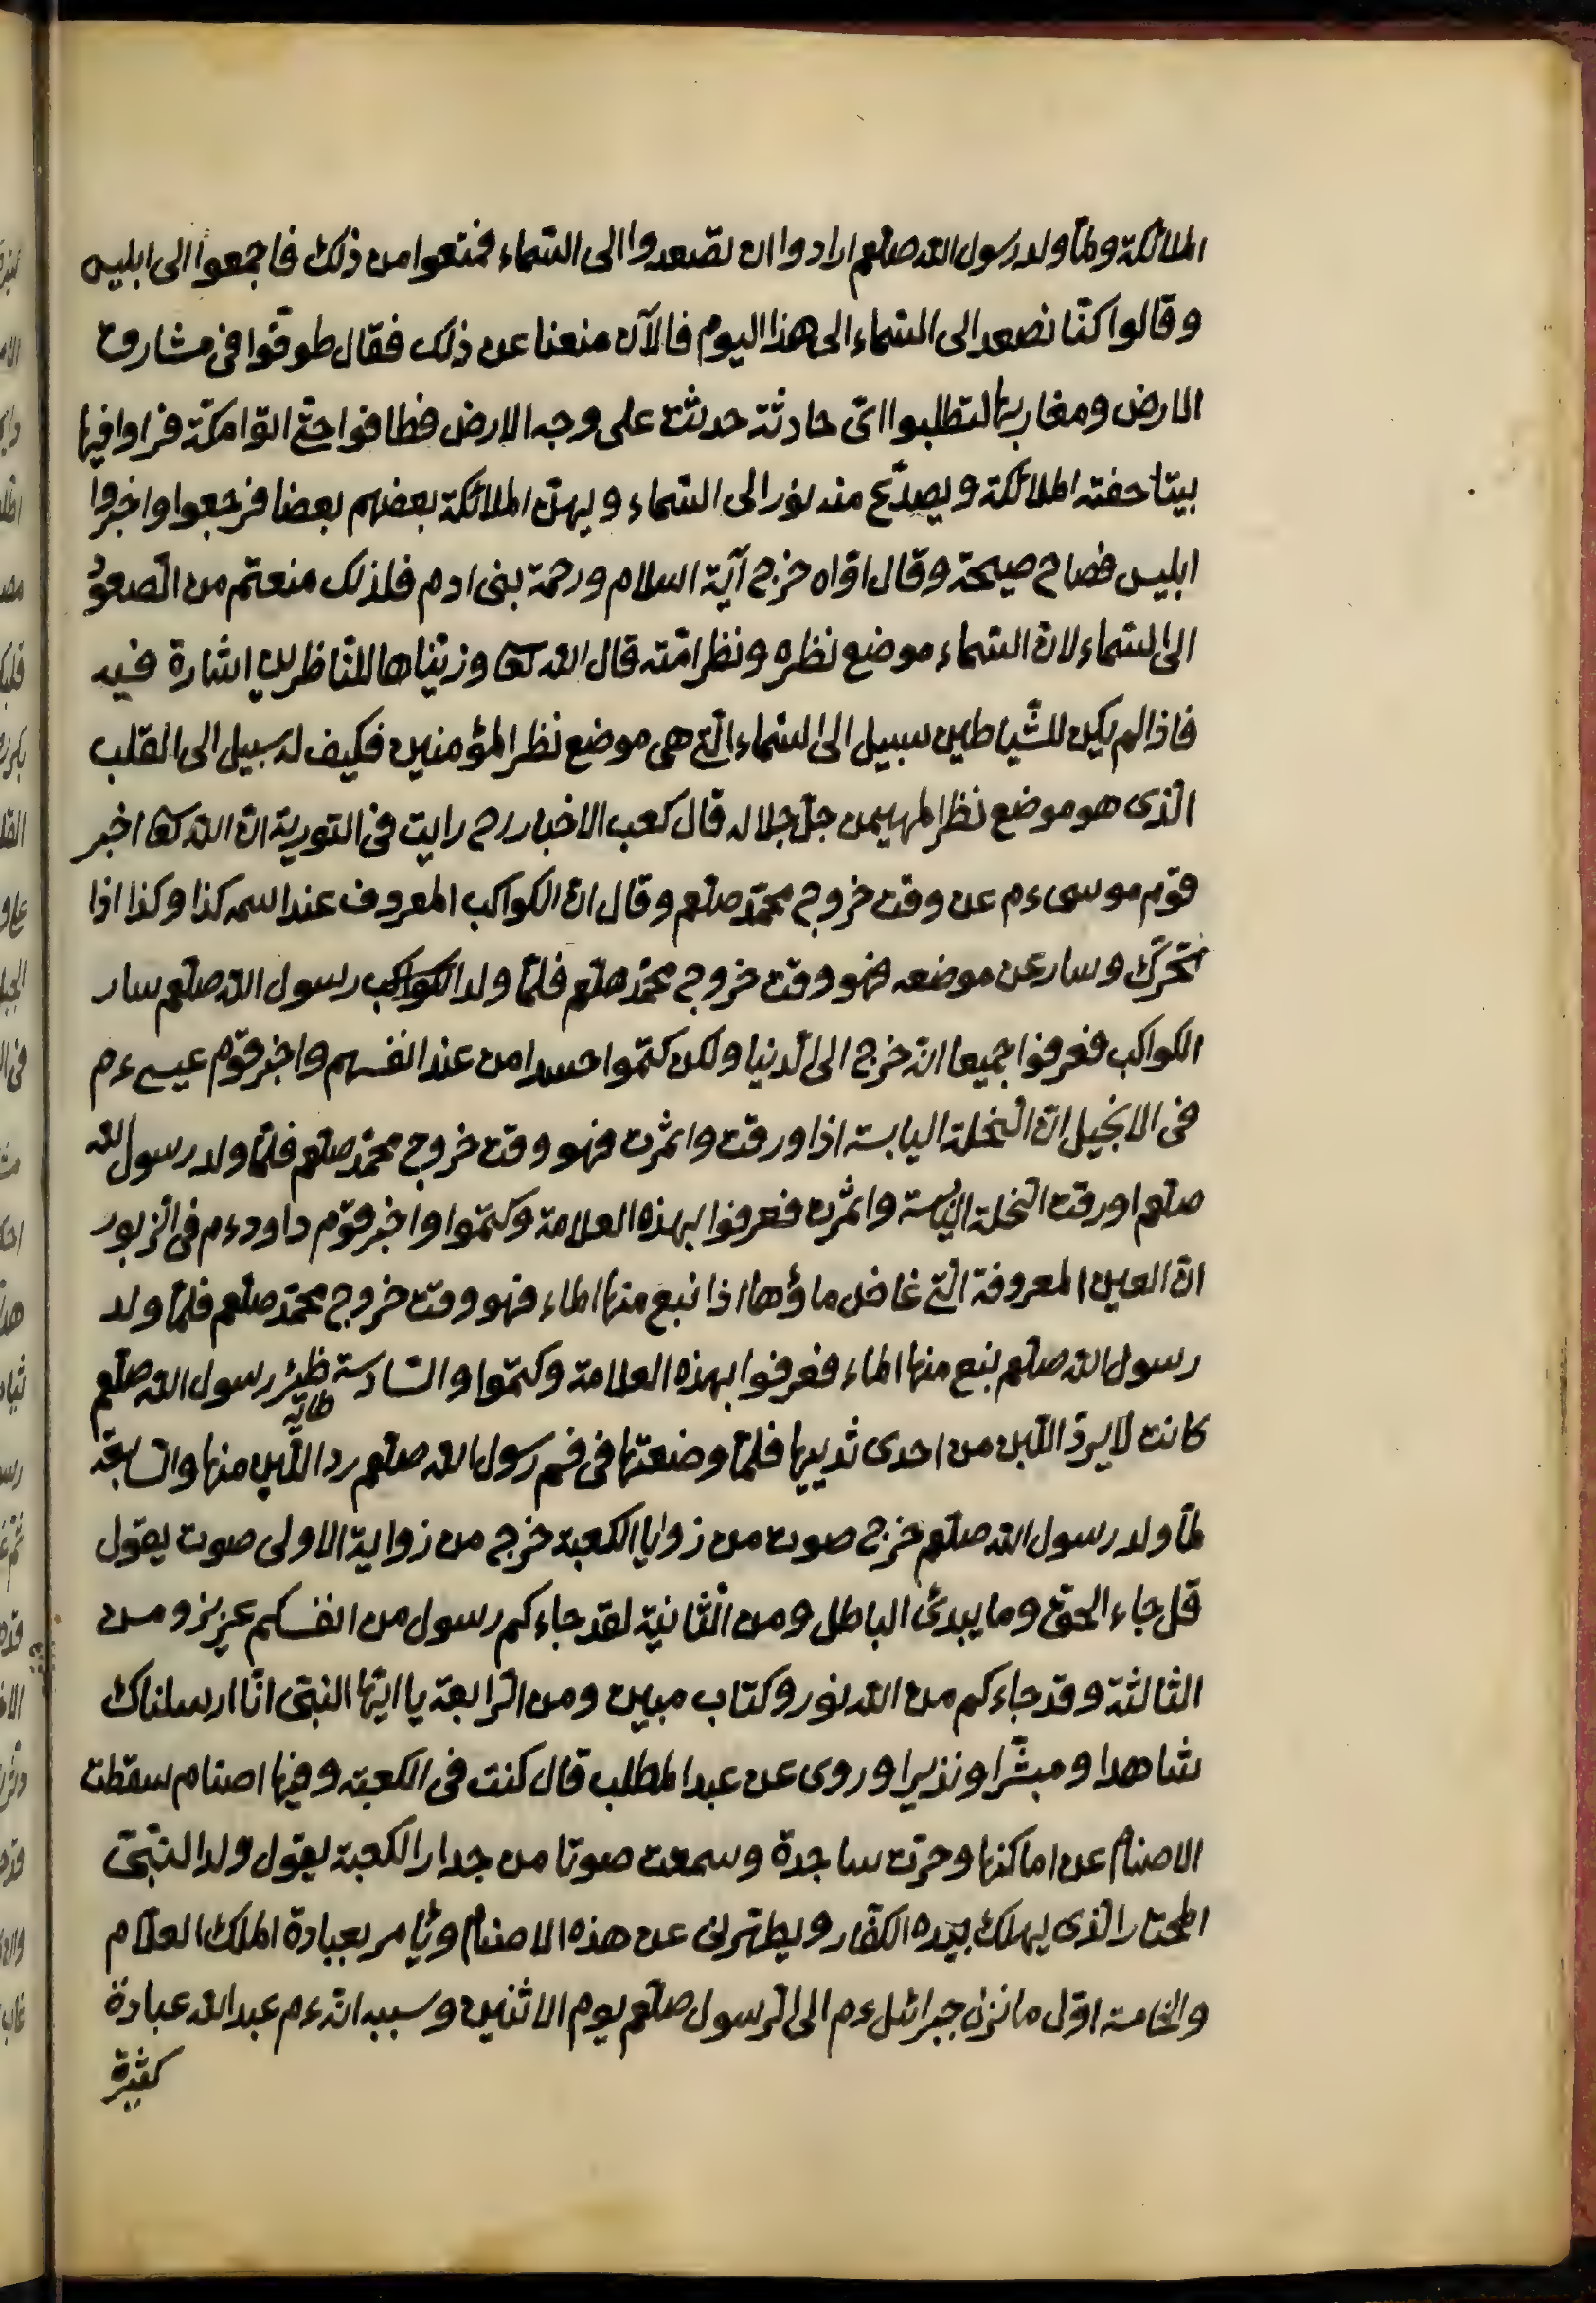 الملائكة ولما ولد رسول الله صلعم ارادوا ان تصعدوا الى السماء فمنعوا من ذلك فاجمعوا الى ابليس
وقالوا كنّا نصعد الى السماء الى هذا اليوم فالآن منعنا عن ذلك فقال طوقوا فى مشارق
الارض ومغاربها لتطلبوا اىّ حادثة حدثت على وجه الارض فطافوا حتى اتوا مكّة فراوا فيها
بيتا حفته الملائكة ويصدّع منه نور الى السماء ويهنّ الملائكة بعضهم بعضا فرجعوا واخبروا
ابليس فصاح صيحة وقال اوّاه خرج آية السلام ورحمة بنى ادم فلذلك منعتم من الصعود
الى السماء لانّ السماء موضع نظره ونظر امّته قال الله تعا وزيّنّاها للنّاظرين اشارة فيه
فاذا لم يكن للشّياطين سبيل الى السّماء الّتى هى موضع نظر المؤمنين فكيف له سبيل الى القلب
الّذى هو موضع نظر المهيمن جلّ جلاله قال كعب الاخبار رح رايت فى التورية انّ الله تعا اخبر
قوم موسى ءم عن وقت خروج محمّد صلعم وقال انّ الكواكب المعروف عند اسمه كذا وكذا اذا
تحرّك وسار عن موضعه فهو وقت خروج محمّد صلعم فلمّا ولد الكواكب رسول الله صلعم سار
الكواكب فعرفوا جميعا انّه خرج الى الدّنيا ولكن كتموا حسدا من عند انفسهم واخبر قوم عيسى ءم
فى الانجيل انّ النّخلة اليابسة اذا ورقت واثمرت فهو وقت خروج محمّد صلعم فلمّا ولد رسول الله
صلعم اورقت النّخلة اليابسة واثمرت فعرفوا بهذه العلامة وكتموا واخبر قوم داود ءم فى الزّبور
انّ العين المعروفة الّتى غاض ماؤها اذا نبع منها الماء فهو وقت خروج محمّد صلعم فلمّا ولد
رسول الله صلعم بنع منها الماء فعرفوا بهذه العلامة وكتموا والسّادسة ظئر رسول الله صلعم
كانت لا يردّ اللّبن من احدى ثدييها فلمّا وضعتها فى فم رسول الله صلعم ردّ اللّبن منها والسّابعة
لمّا ولد رسول الله صلعم خرج صوت من زوايا الكعبة خرج من زواية الاولى صوت يقول
قل جاء الحقّ وما يبدئ الباطل ومن الثّانية لقد جاءكم رسول من انفسكم عزيز ومن
الثالثة وقد جاءكم من الله نور وكتاب مبين ومن الرّابعة يا ايّها النبىّ انّا ارسلناك
شاهدا ومبشّرا ونذيرا وروى عن عبد المطلب قال كنت فى الكعبة وفيها اصنام سقطت
الاصنام عن اماكنها وخرّت ساجدة وسمعت صوتا من جدار الكعبة يقول ولد النّبىّ
المختار الّذى يهلك بيده الكفّار ويطهّرنى عن هذه الاصنام ويأمر بعبادة الملك العلّام
والخامسة اوّل ما نزل جبرائل ءم الى الرسول صلعم يوم الاثنين وسببه انّه ءم عبد الله عبادة
كثيرة